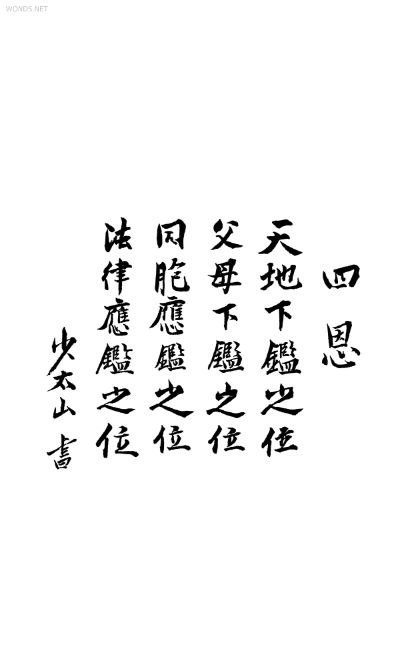 WONDS.NET
四恩
天地下鑑之位
父母下鑑之位
同胞應鑑之位
法律應鑑之位
少太山 書